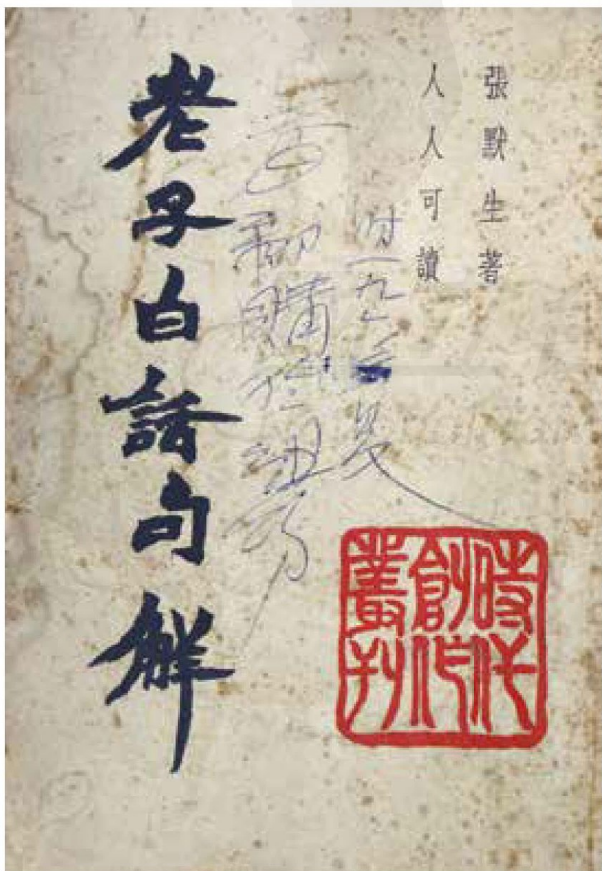 張默生著
人人可讀
老子白話句解
時代
創作
叢刊